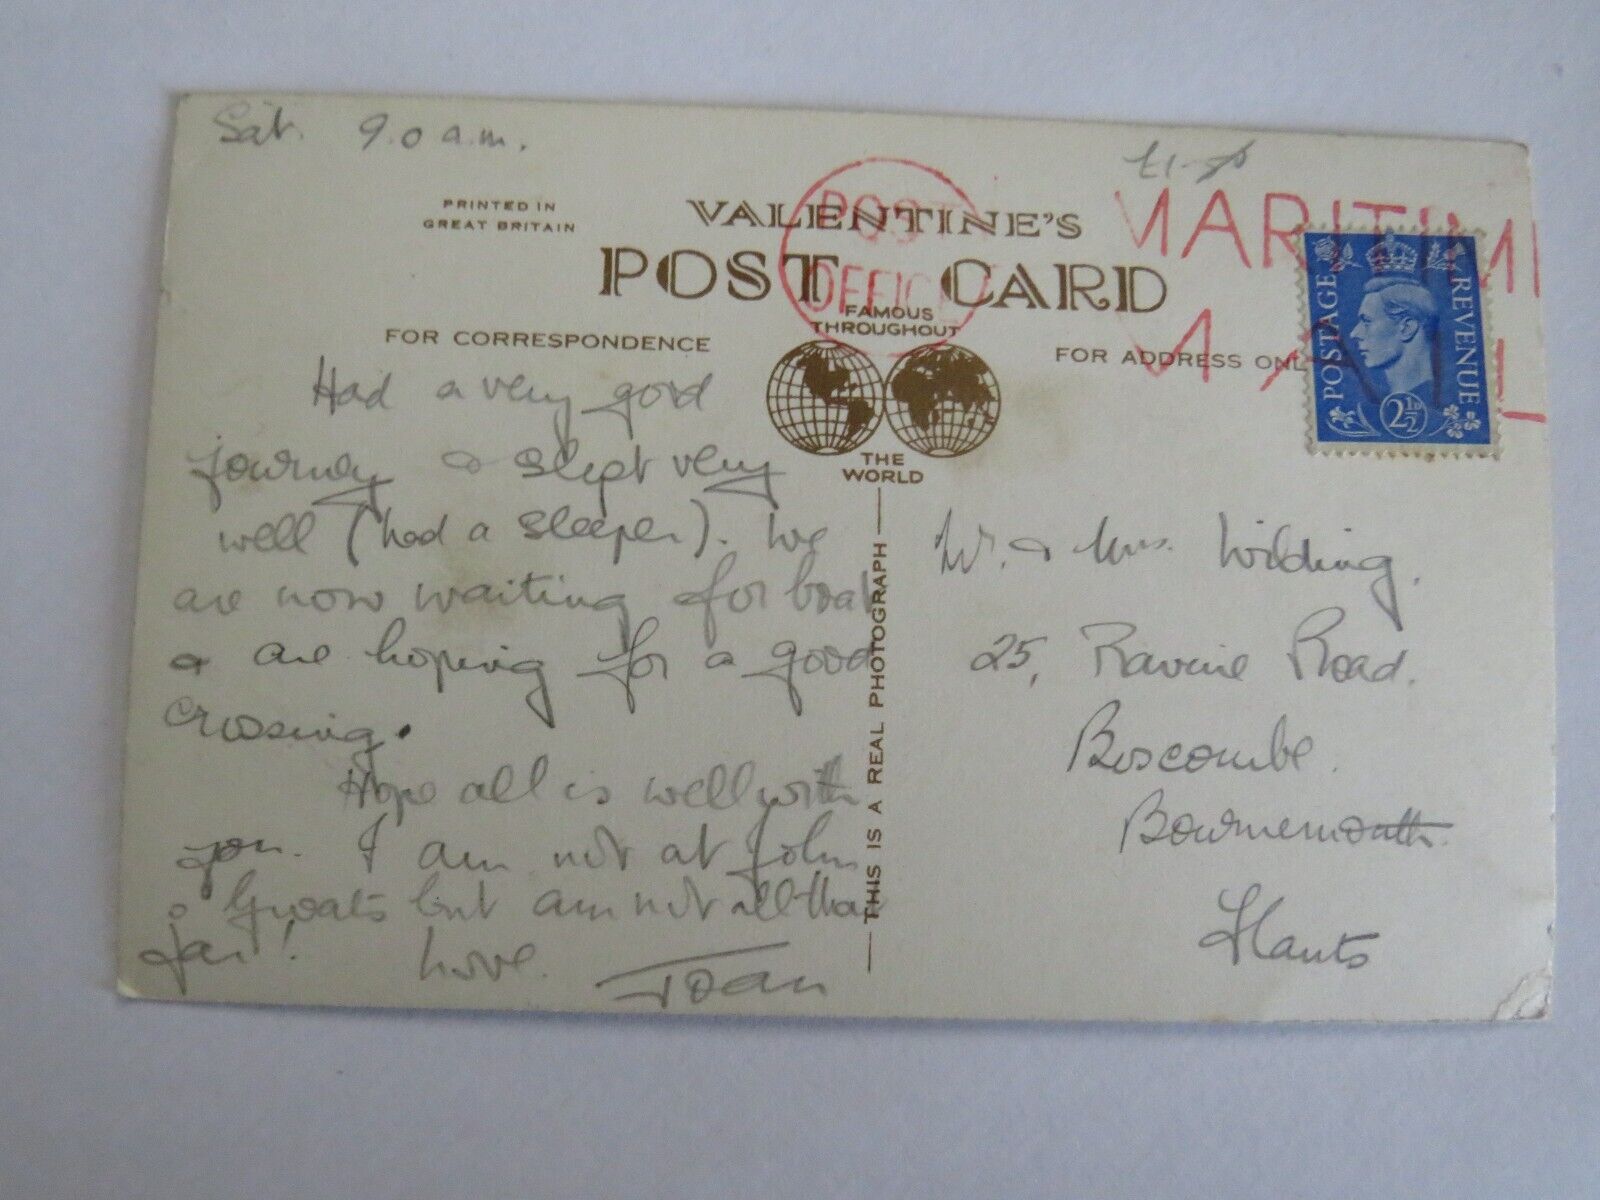 Sat. 9.0 a.m.
PRINTED IN
GREAT BRITAIN
VALENTINE'S
POST CARD
FAMOUS
THROUGHOUT
THE
WORLD
FOR CORRESPONDENCE
FOR ADDRESS ONL
POST
OFFICE
MARITIM
MAIL
POSTAGE
REVENUE
2½D
THIS IS A REAL PHOTOGRAPH
Had a very good
journey & slept very
well (had a sleeper). We
are now waiting for boat
& are hoping for a good
crossing.
Hope all is well with
you. I am not at John
o' Groats but am not all that
far! Love. Joan
Mr. & Mrs. Wilding.
25, Ravine Road.
Boscombe.
Bournemouth.
Hants